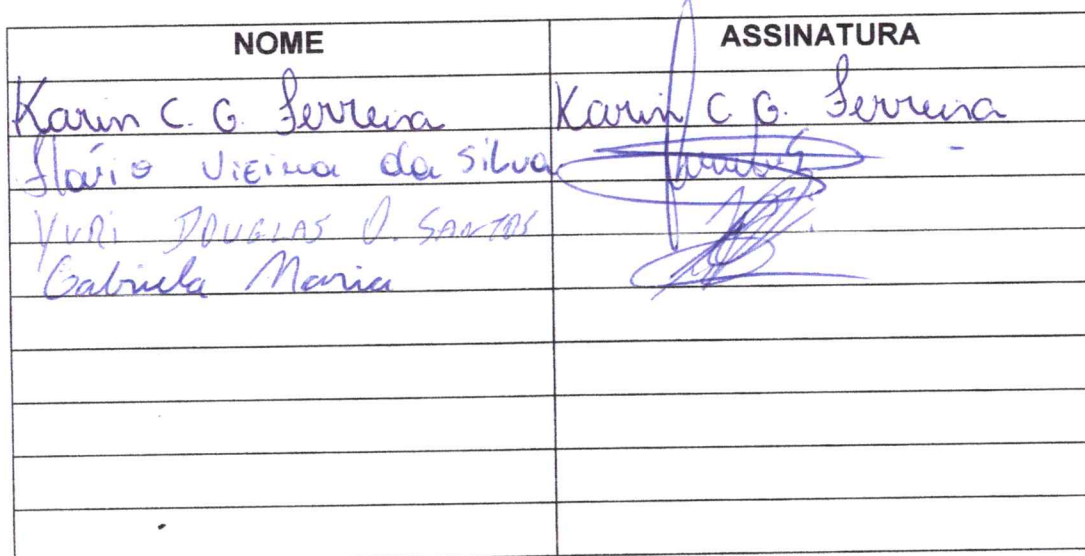 NOME ASSINATURA
Karin C. G. Ferreira Karin C. G. Ferreira
Flávio Vieira da Silva
YURI DOUGLAS O. SANTOS
Gabriela Maria